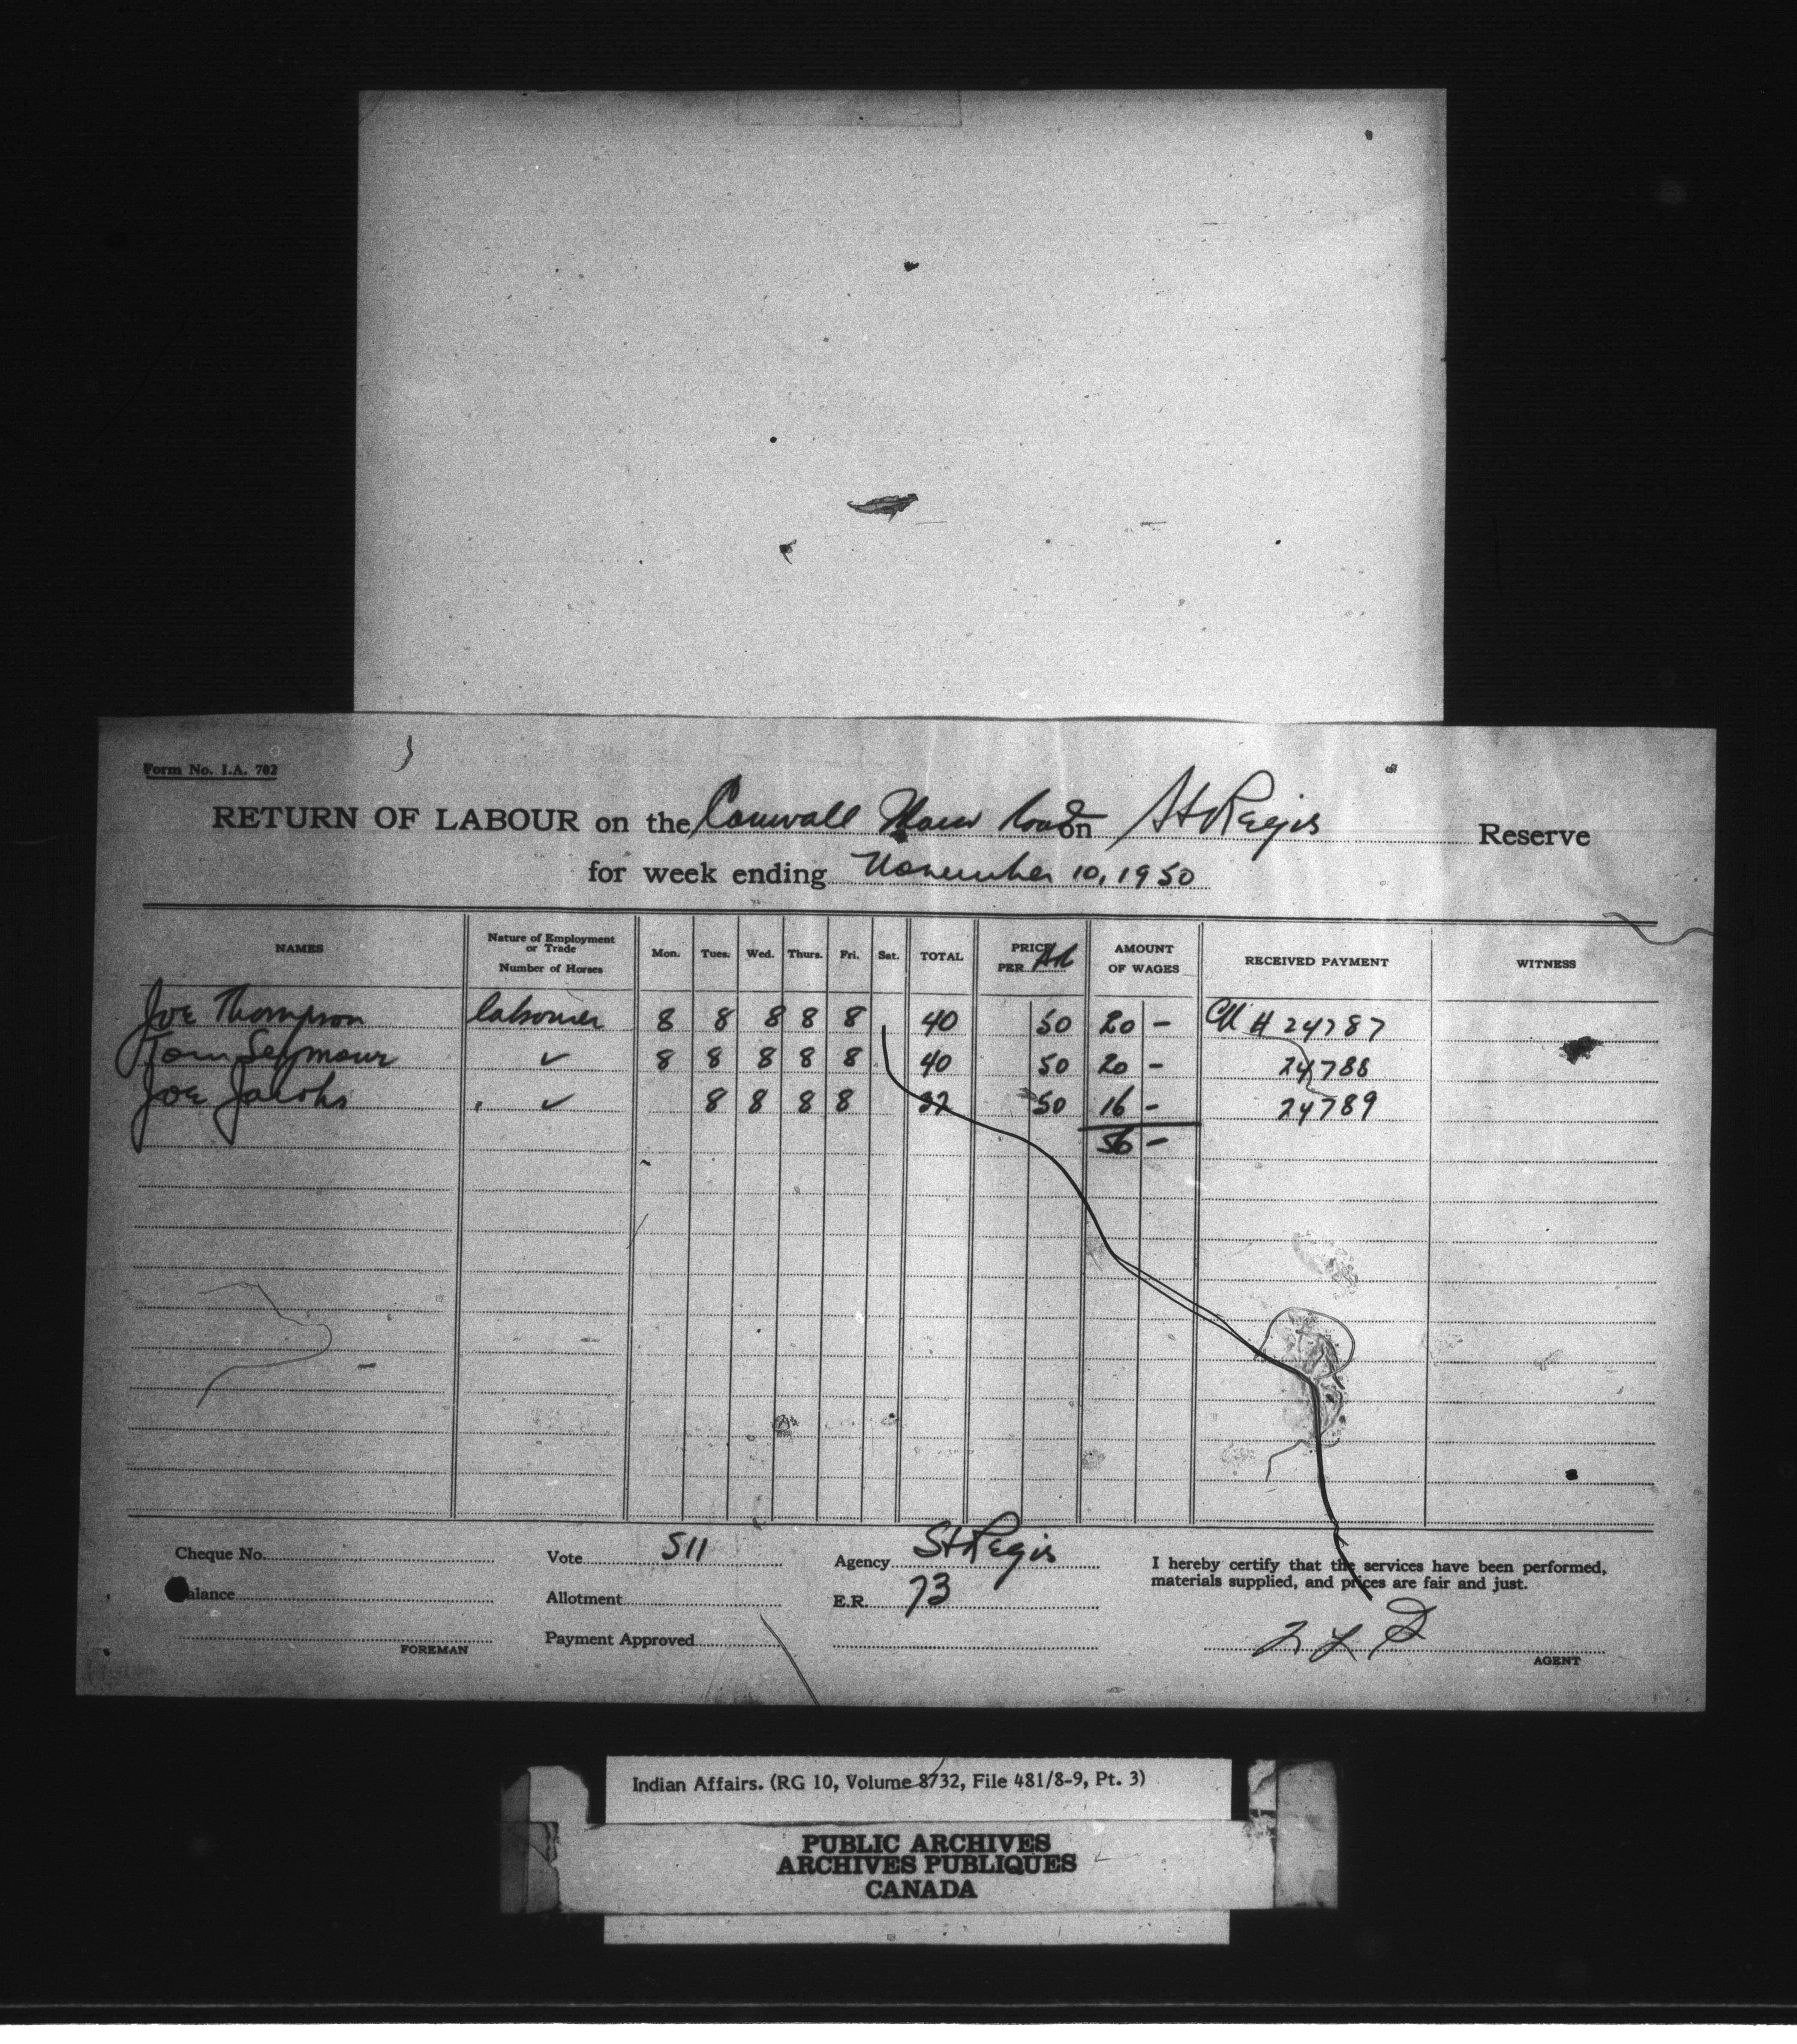 Form No. I.A. 702
RETURN OF LABOUR on the Cornwall Main Road on St Regis Reserve
for week ending November 10, 1950
NAMES Nature of Employment or Trade Number of Horses Mon. Tues. Wed. Thurs. Fri. Sat. TOTAL PRICE PER AMOUNT OF WAGES RECEIVED PAYMENT WITNESS
Joe Thompson labourer 8 8 8 8 8 40 50 20 - Ch # 24787
Tom Seymour ✓ 8 8 8 8 8 40 50 20 - 24788
Joe Jacobs ✓ 8 8 8 8 32 50 16 - 24789
56 -
Cheque No. Vote 511 Agency St Regis I hereby certify that the services have been performed,
materials supplied, and prices are fair and just.
Balance Allotment E.R. 73
Payment Approved
FOREMAN AGENT
Indian Affairs. (RG 10, Volume 8732, File 481/8-9, Pt. 3)
PUBLIC ARCHIVES
ARCHIVES PUBLIQUES
CANADA